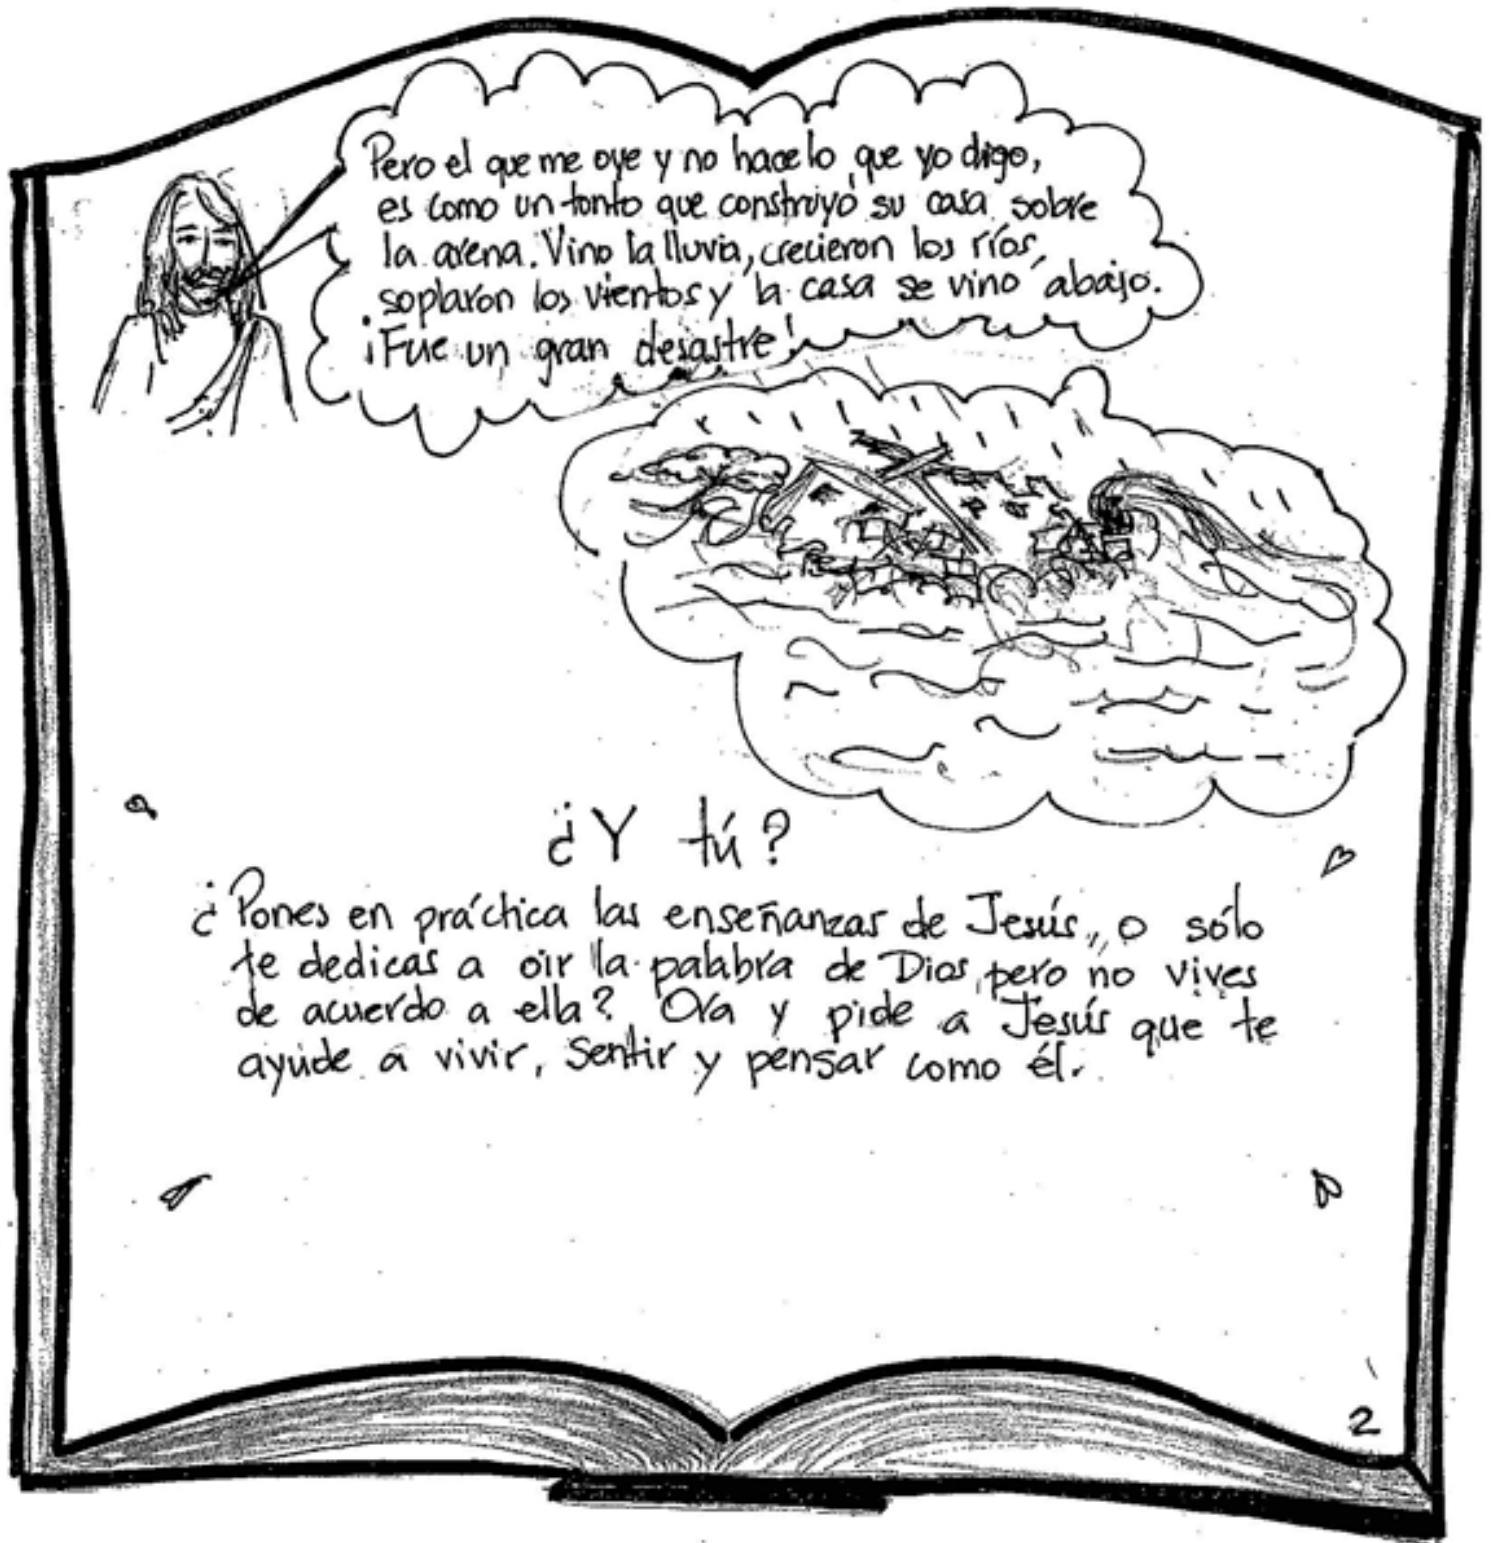 Pero el que me oye y no hace lo que yo digo,
es como un tonto que construyó su casa sobre
la arena. Vino la lluvia, crecieron los ríos,
soplaron los vientos y la casa se vino abajo.
¡Fue un gran desastre!
¿Y tú?
¿Pones en práctica las enseñanzas de Jesús, o sólo
te dedicas a oir la palabra de Dios, pero no vives
de acuerdo a ella? Ora y pide a Jesús que te
ayude a vivir, sentir y pensar como él.
2